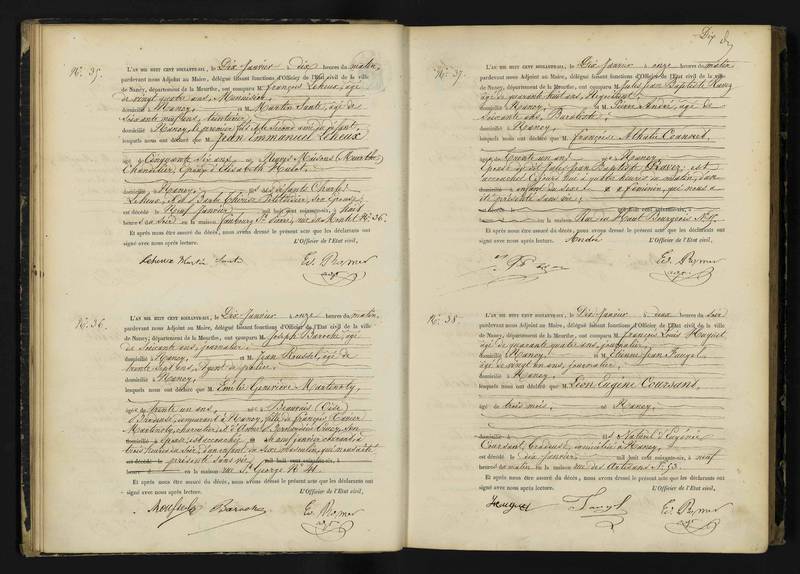 N.º 35.
L'AN MIL HUIT CENT SOIXANTE-SIX, le Dix Janvier à dix heures du matin,
pardevant nous Adjoint au Maire, délégué faisant fonctions d'Officier de l'Etat civil de la ville
de Nancy, département de la Meurthe, ont comparu M. François Leheux, âgé
de vingt quatre ans, Menuisier,
domicilié à Nancy, et M. Martin Santé, âgé de
soixante neuf ans, teinturier,
domicilié à Nancy, le premier fils et le second ami du défunt,
lesquels nous ont déclaré que M. Jean Emmanuel Leheux
âgé de Cinquante six ans, né à
Chandelier, Epoux d'Elisabeth Hulot,
domicilié à Nancy, fils des défunts Charles
Leheux, et son Epouse,
est décédé le Neuf Janvier mil huit cent soixante-six, à huit
heures du soir en la maison faubourg St. Pierre, rue de Montet N.º 36.
Et après nous être assuré du décès, nous avons dressé le présent acte que les déclarants
ont signé avec nous après lecture. L'Officier de l'Etat civil,
Leheux Martin Santé
N.º 36.
L'AN MIL HUIT CENT SOIXANTE-SIX, le Dix Janvier à onze heures du matin,
pardevant nous Adjoint au Maire, délégué faisant fonctions d'Officier de l'Etat civil de la ville
de Nancy, département de la Meurthe, ont comparu M. Joseph Baroche, âgé
de soixante ans, journalier,
domicilié à Nancy, et M. Jean Roussel, âgé de
trente sept ans, Agent de police,
domicilié à Nancy,
lesquels nous ont déclaré que M. Emélie Geneviève Martinoty,
âgée de trente un ans, née à Beauvais (Oise)
Brodeuse, demeurant à Nancy, fille de François Xavier
Martinoty, charpentier, et d'Anne
épouse, est accouchée le neuf janvier courant à
trois heures du soir, d'un enfant du sexe masculin, qui nous a été
présenté sans vie, mil huit cent soixante-six, à
en la maison rue St. George N.º
Et après nous être assuré du décès, nous avons dressé le présent acte que les déclarants ont
signé avec nous après lecture. L'Officier de l'Etat civil,
Baroche
Dix
N.º 37.
L'AN MIL HUIT CENT SOIXANTE-SIX, le Dix Janvier à onze heures du matin
pardevant nous Adjoint au Maire, délégué faisant fonctions d'Officier de l'Etat civil de la ville
de Nancy, département de la Meurthe, ont comparu M. Jules Jean Baptiste
âgé de quarante huit ans,
domicilié à Nancy, et M. Pierre André, âgé de
soixante ans,
domicilié à Nancy,
lesquels nous ont déclaré que M. Françoise
âgée de trente un ans née à Nancy
Epouse du dit Jules Jean Baptiste est
accouchée ce jour d'hui à quatre heures du matin, d'un
enfant du sexe féminin, qui nous a
été présenté sans vie,
mil huit cent soixante-six, à
en la maison Rue du Haut Bourgeois N.º
Et après nous être assuré du décès, nous avons dressé le présent acte que les déclarants ont
signé avec nous après lecture. André L'Officier de l'Etat civil,
N.º 38.
L'AN MIL HUIT CENT SOIXANTE-SIX, le Dix Janvier à deux heures du soir
pardevant nous Adjoint au Maire, délégué faisant fonctions d'Officier de l'Etat civil de la ville
de Nancy, département de la Meurthe, ont comparu M. François Louis
âgé de quarante quatre ans, journalier,
domicilié à Nancy, et M. Etienne Jean
âgé de vingt un ans, journalier,
domicilié à Nancy,
lesquels nous ont déclaré que M. Léon Eugène Coursant,
âgé de trois mois, né à Nancy,
fils Naturel d'Eugénie
Coursant, brodeuse, domiciliée à Nancy,
est décédé le dix janvier, mil huit cent soixante-six, à neuf
heures du matin en la maison rue des Artisans N.º 53.
Et après nous être assuré du décès, nous avons dressé le présent acte que les déclarants ont
signé avec nous après lecture. L'Officier de l'Etat civil,